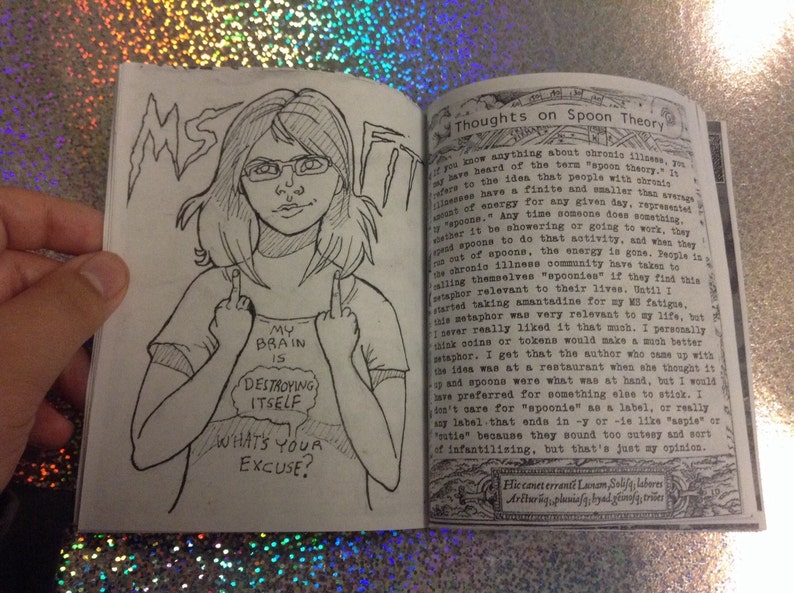 MS
MY
BRAIN
IS
DESTROYING
ITSELF
WHAT'S YOUR
EXCUSE?
Thoughts on Spoon Theory
If you know anything about chronic illness, you
may have heard of the term "spoon theory." It
refers to the idea that people with chronic
illnesses have a finite and smaller than average
amount of energy for any given day, represented
by "spoons." Any time someone does something,
whether it be showering or going to work, they
spend spoons to do that activity, and when they
run out of spoons, the energy is gone. People in
the chronic illness community have taken to
calling themselves "spoonies" if they find this
metaphor relevant to their lives. Until I
started taking amantadine for my MS fatigue,
this metaphor was very relevant to my life, but
I never really liked it that much. I personally
think coins or tokens would make a much better
metaphor. I get that the author who came up with
the idea was at a restaurant when she thought it
up and spoons were what was at hand, but I would
have preferred for something else to stick. I
don't care for "spoonie" as a label, or really
any label that ends in -y or -ie like "aspie" or
"cutie" because they sound too cutesy and sort
of infantilizing, but that's just my opinion.
Hic canet errantē Lunam, Solisq; labores
Arcturūq;, pluuiasq; hyad. geinosq; triões